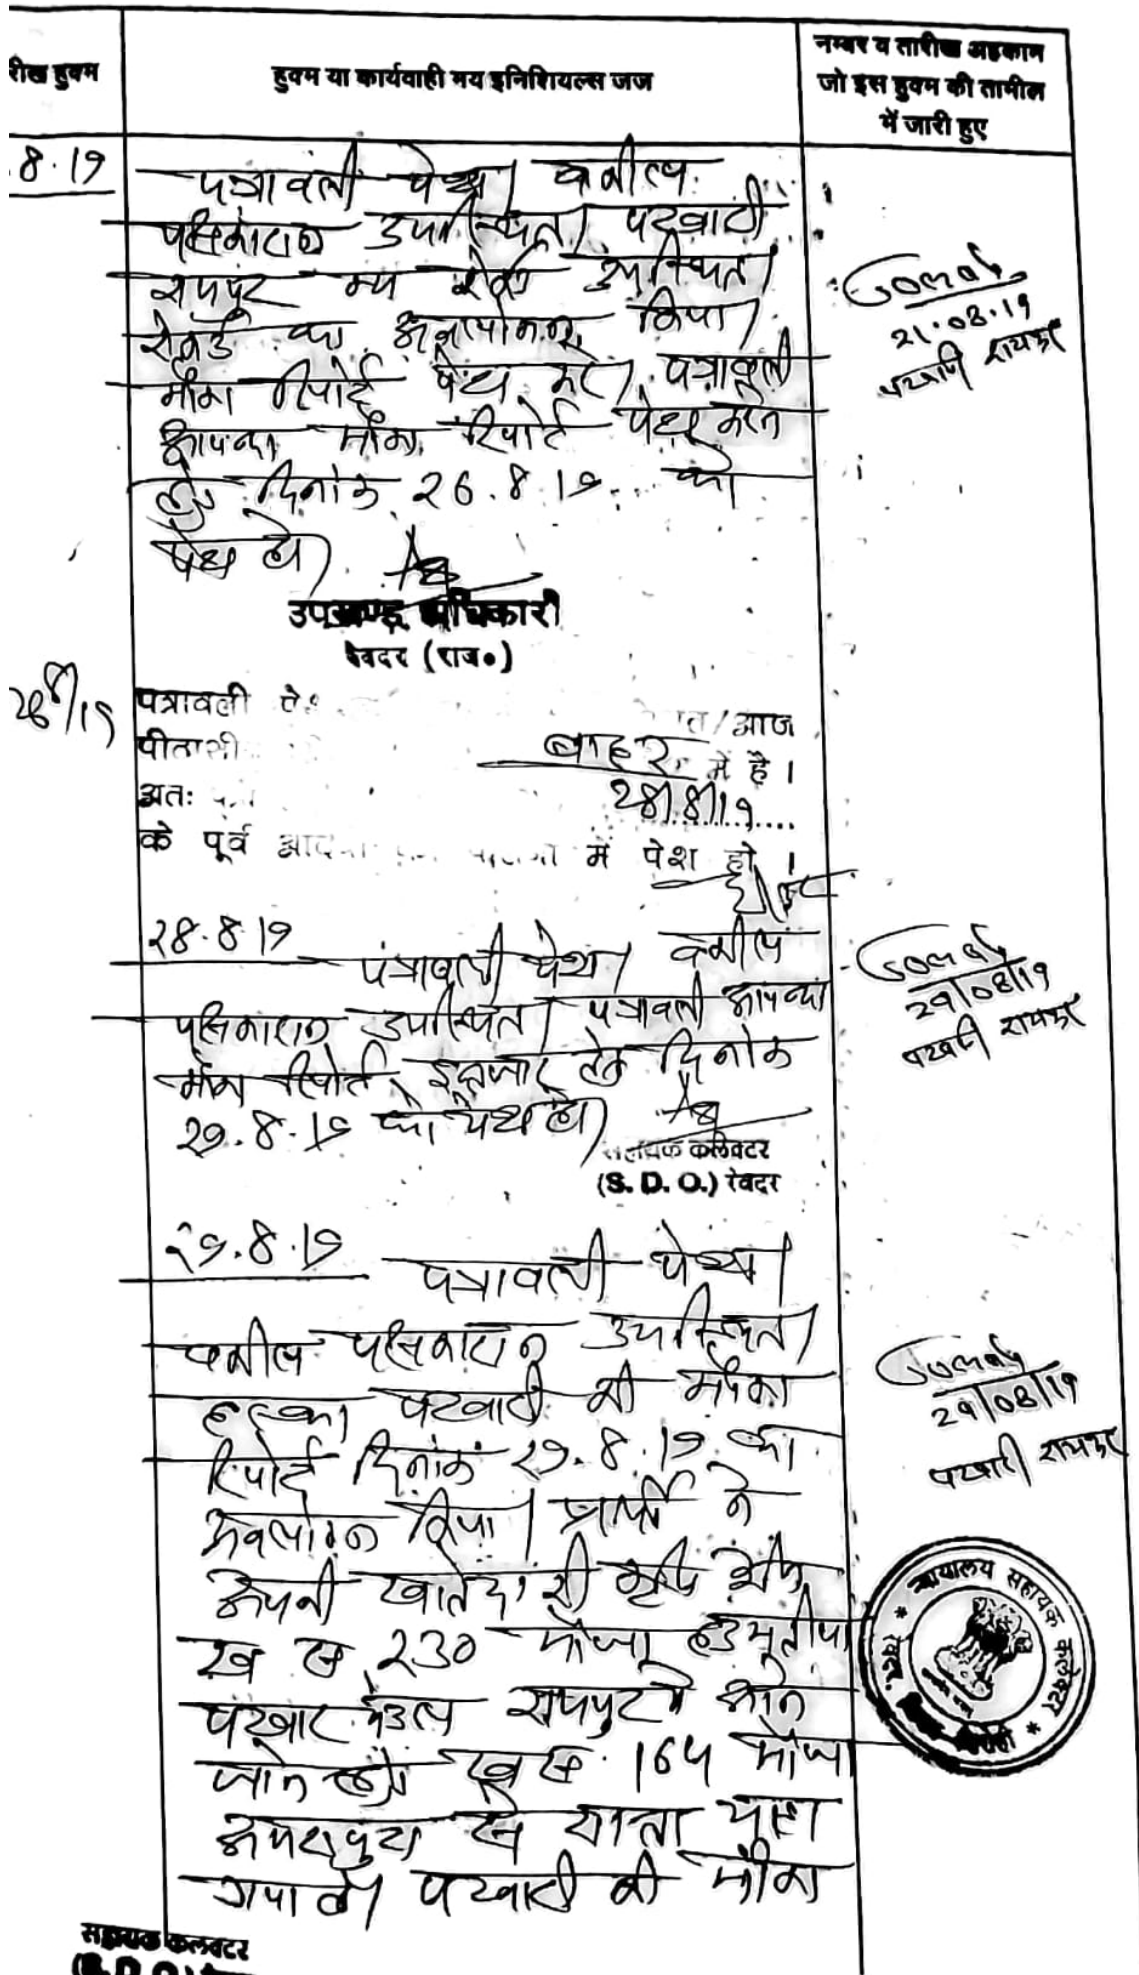 रीख हुक्म
हुक्म या कार्यवाही मय इनिशियल्स जज
नम्बर व तारीख अहकाम
जो इस हुक्म की तामील
में जारी हुए
.8.19
पत्रावली पेश। वकील
पक्षकारान उपस्थित। पटवारी
रायपुर मय रेकर्ड उपस्थित।
रेकर्ड का अवलोकन किया।
मौका रिपोर्ट पेश करे। पत्रावली
आयन्दा मौका रिपोर्ट पेश करने
हेतु दिनांक 26.8.19 को
पेश हो।
21.08.19
पटवारी रायपुर
उपखण्ड अधिकारी
रेवदर (राज०)
26/8/19
पत्रावली पे
त/आज
पीठासी
बाहर में है।
अतः
28/8/19
के पूर्व में पेश हो।
28.8.19
पत्रावली पेश। वकील
पक्षकारान उपस्थित। पत्रावली आयन्दा
मौका रिपोर्ट इन्तजार हेतु दिनांक
29.8.19 को पेश हो।
29/08/19
पटवारी रायपुर
सहायक कलेक्टर
(S. D. O.) रेवदर
29.8.19
पत्रावली पेश।
वकील पक्षकारान उपस्थित।
हल्का पटवारी की मौका
रिपोर्ट दिनांक 29.8.19 का
अवलोकन किया। प्रार्थी ने
अपनी खातेदारी कृषि भूमि
ख सं 230 मौजा
पटवार मण्डल रायपुर में आने
जाने हेतु ख सं 164 मौजा
से रास्ता चाहा
गया है। पटवारी की मौका
29/08/19
पटवारी रायपुर
न्यायालय सहायक कलेक्टर
रेवदर
सिरोही
सहायक कलेक्टर
(S. D. O.)